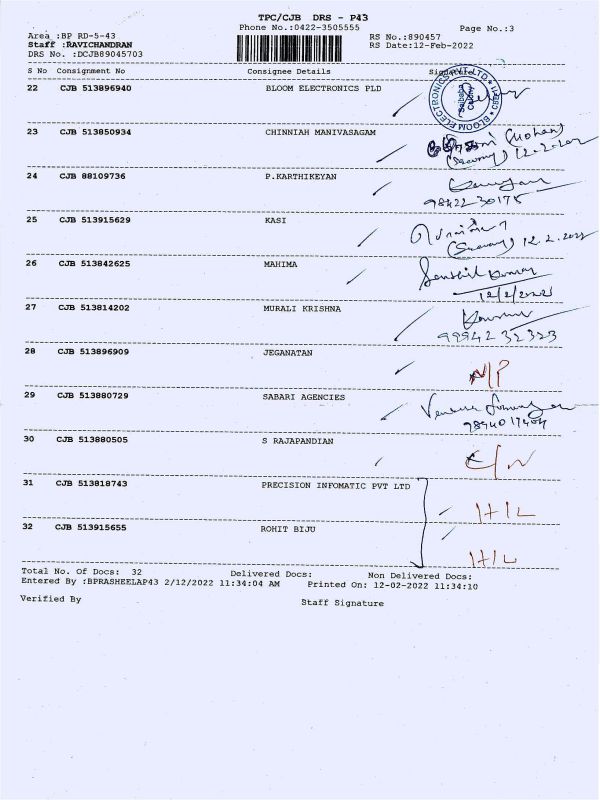 TPC/CJB DRS - P43
Phone No.:0422-3505555
Page No.:3
Area :BP RD-5-43
RS No.:890457
Staff :RAVICHANDRAN
RS Date:12-Feb-2022
DRS No. :DCJB89045703
S No Consignment No Consignee Details Signature
22 CJB 513896940 BLOOM ELECTRONICS PLD
BLOOM ELECTRONICS PVT LTD
Saibaba Colony
23 CJB 513850934 CHINNIAH MANIVASAGAM (Mohan)
12-2-202
24 CJB 88109736 P.KARTHIKEYAN
98422 30175
25 CJB 513915629 KASI
12.2.2022
26 CJB 513842625 MAHIMA Senthil Kumar
12/2/2022
27 CJB 513814202 MURALI KRISHNA
99942 32323
28 CJB 513896909 JEGANATAN N/P
29 CJB 513880729 SABARI AGENCIES
9894017404
30 CJB 513880505 S RAJAPANDIAN C/N
31 CJB 513818743 PRECISION INFOMATIC PVT LTD
H/L
32 CJB 513915655 ROHIT BIJU
H/L
Total No. Of Docs: 32 Delivered Docs: Non Delivered Docs:
Entered By :BPRASHEELAP43 2/12/2022 11:34:04 AM Printed On: 12-02-2022 11:34:10
Verified By Staff Signature